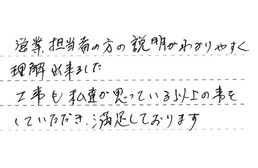 営業担当者の方の説明がわかりやすく
理解出来ました
工事も私達が思っている以上の事を
していただき、満足しております